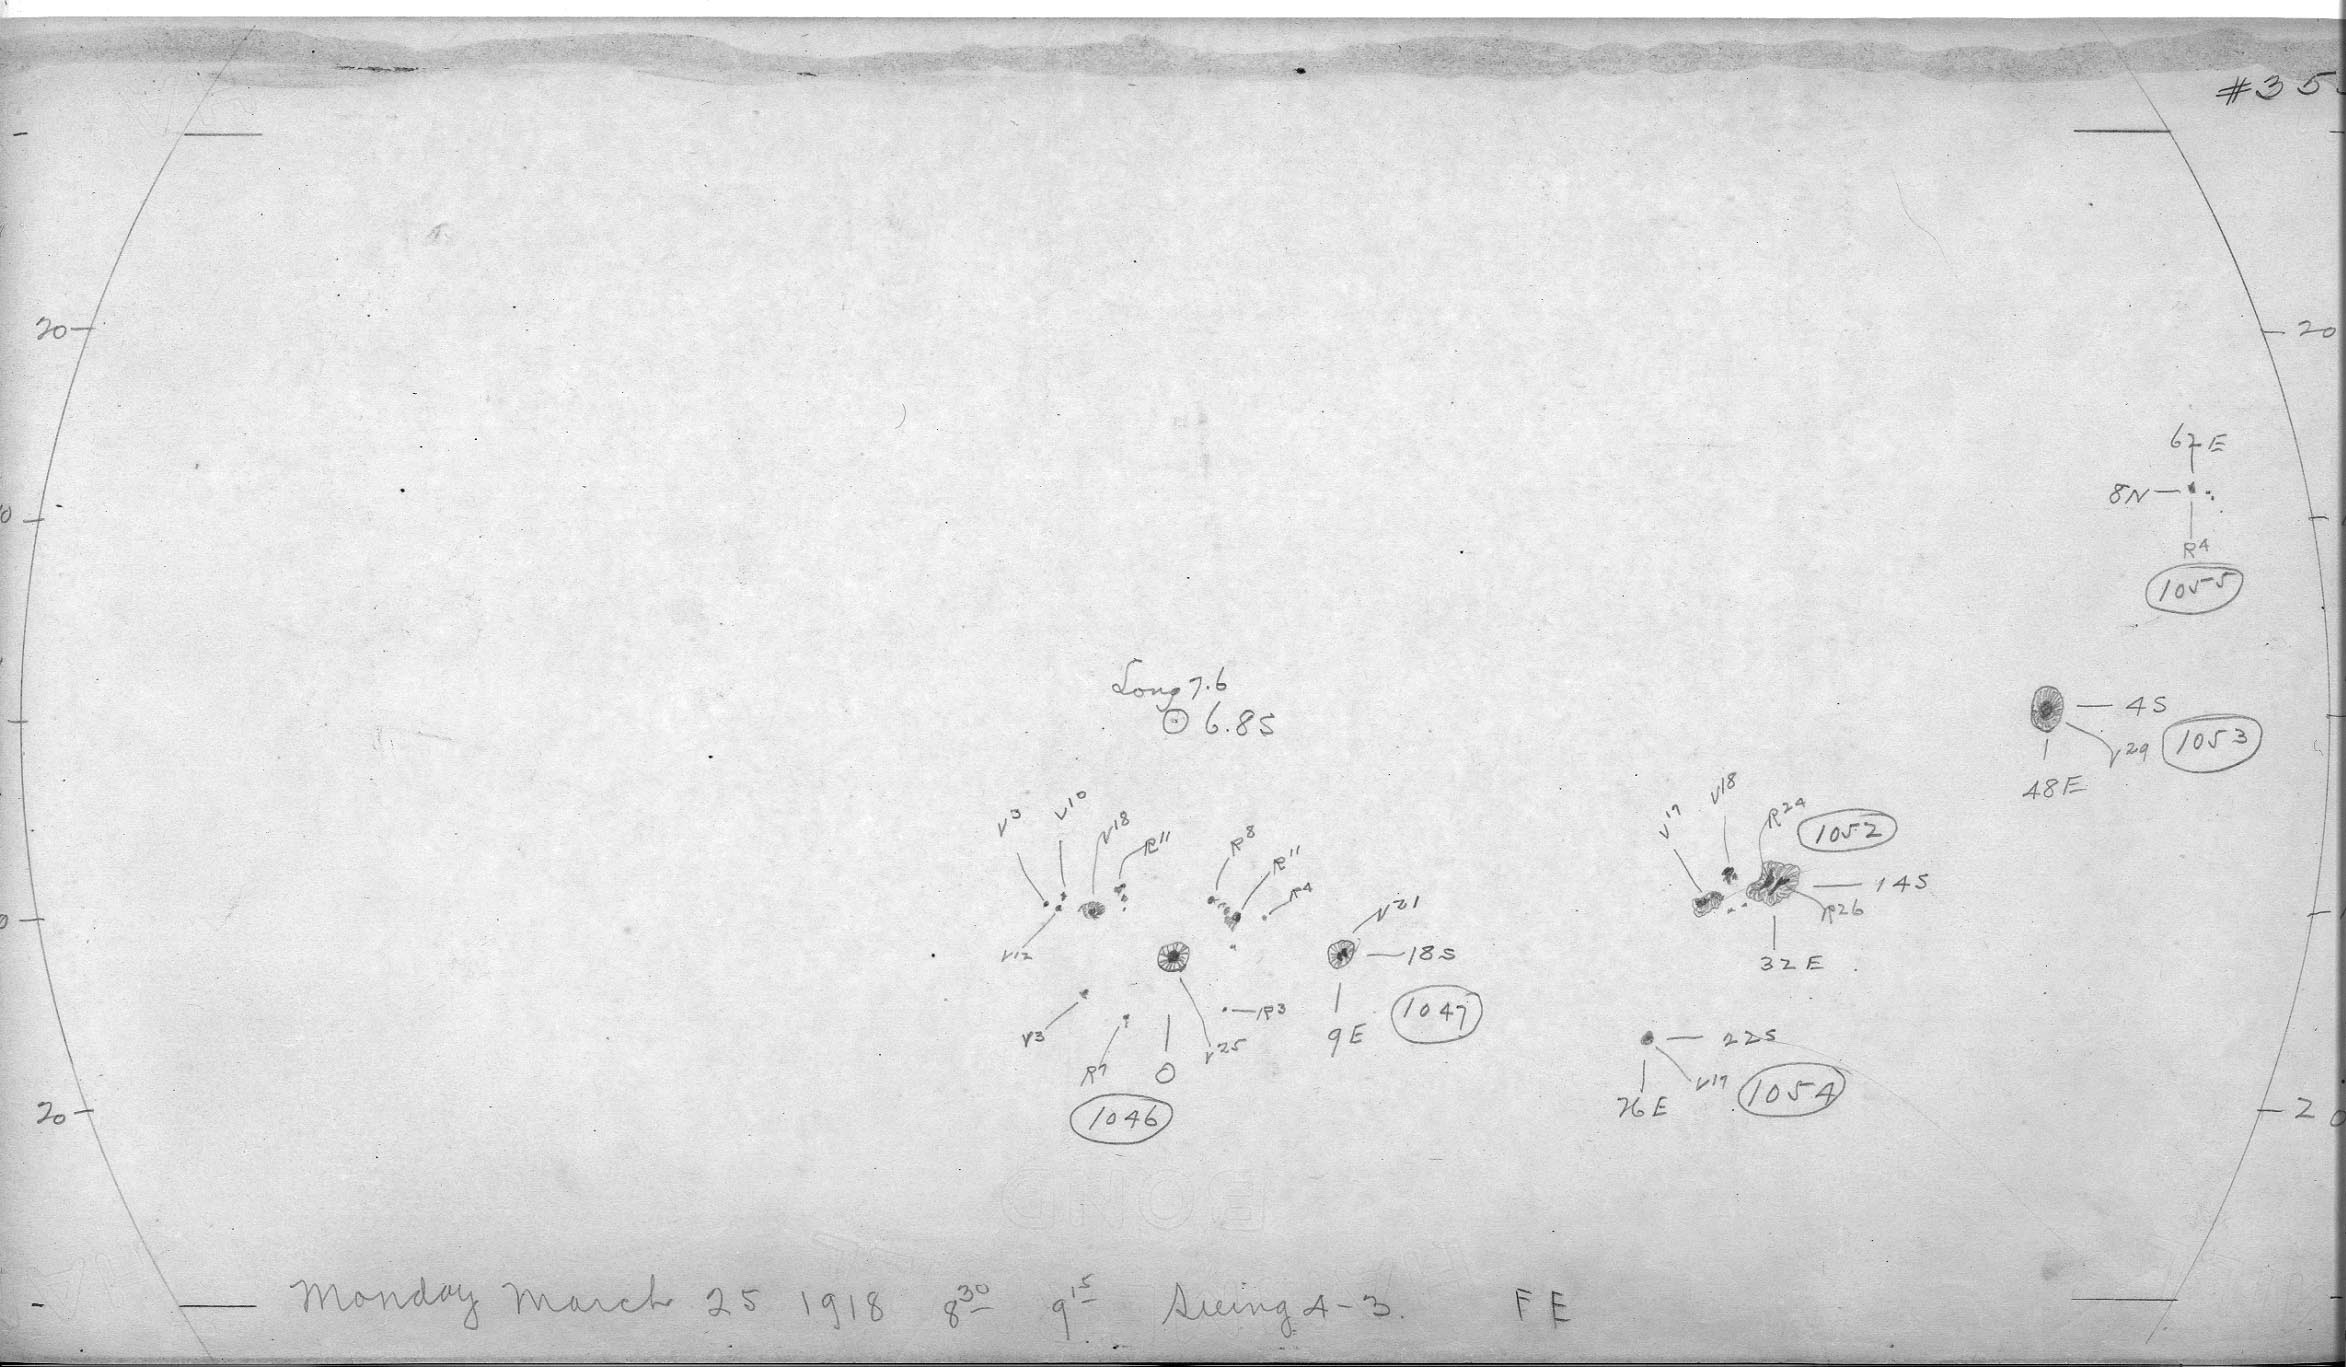 #35
20
20
67E
8N
R4
1055
Long 7.6
6.8S
4S
V29
1053
48E
V3
V10
V18
R11
R8
R11
R4
V12
V21
18S
9E
1047
V17
V18
R24
1052
14S
R26
32E
V3
R7
0
V25
R3
1046
22S
V17
26E
1054
20
20
BOND
Monday March 25 1918 8 30 9 15 Seeing 4-3. F E